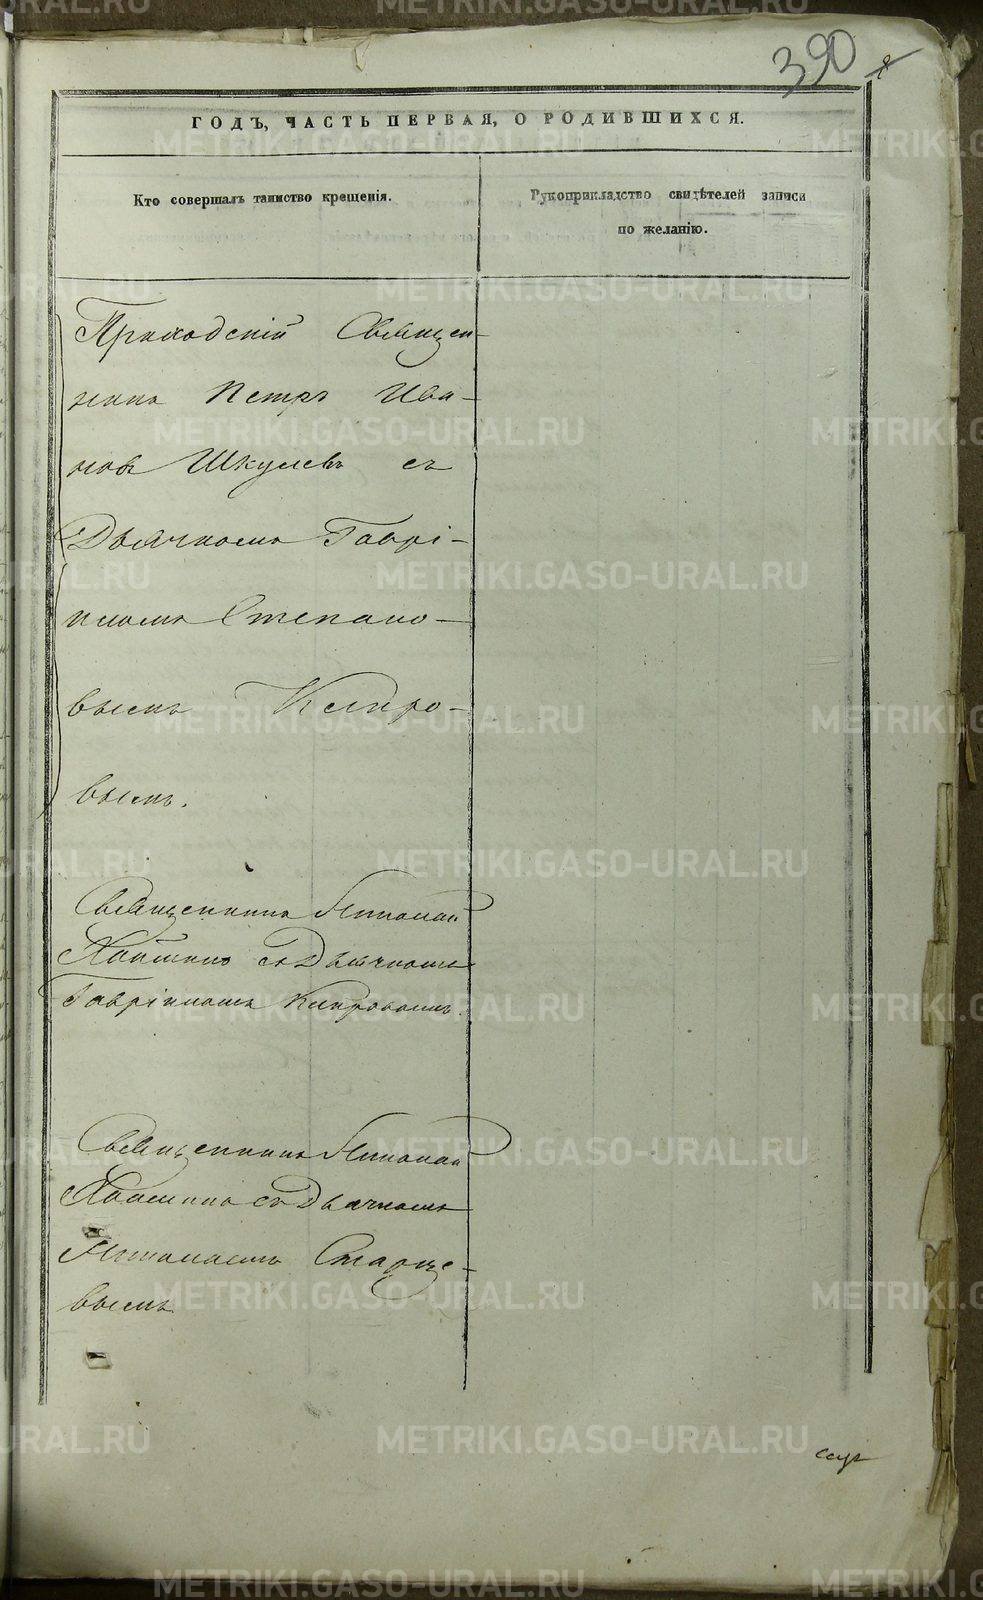 390
ГОДЪ, ЧАСТЬ ПЕРВАЯ, О РОДИВШИХСЯ.
Кто совершалъ таинство крещенія.
Рукоприкладство свидѣтелей записи
по желанію.
Приходскій Священ-
никъ Петръ Ива-
новъ Шкулевъ съ
Дьячкомъ Гаврі-
иломъ Степано-
вымъ Кипро-
вымъ.
Священникъ Николай
съ Дьячкомъ
Гавріиломъ Кипровымъ.
Священникъ Николай
съ Дьячкомъ
Старце-
вымъ
METRIKI.GASO-URAL.RU